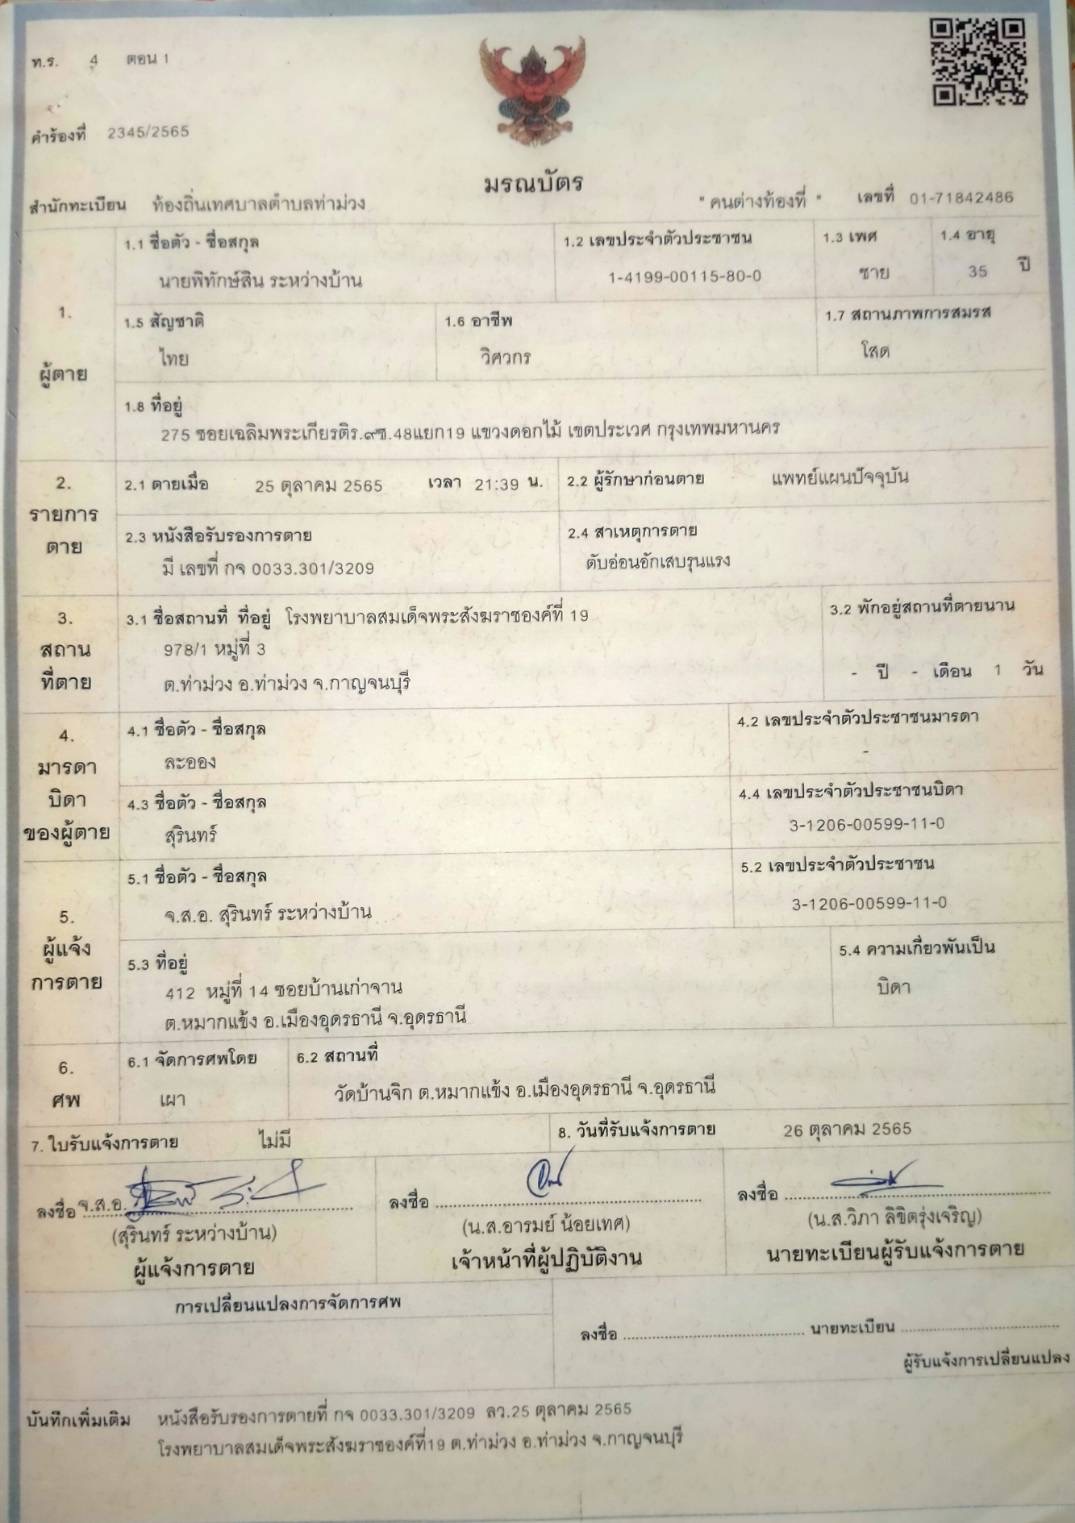 ท.ร. 4 ตอน 1
คำร้องที่ 2345/2565
มรณบัตร
สำนักทะเบียน ท้องถิ่นเทศบาลตำบลท่าม่วง " คนต่างท้องที่ " เลขที่ 01-71842486
1. ผู้ตาย
1.1 ชื่อตัว - ชื่อสกุล
นายพิทักษ์สิน ระหว่างบ้าน
1.2 เลขประจำตัวประชาชน
1-4199-00115-80-0
1.3 เพศ
ชาย
1.4 อายุ
35 ปี
1.5 สัญชาติ
ไทย
1.6 อาชีพ
วิศวกร
1.7 สถานภาพการสมรส
โสด
1.8 ที่อยู่
275 ซอยเฉลิมพระเกียรติร.๙ซ.48แยก19 แขวงดอกไม้ เขตประเวศ กรุงเทพมหานคร
2. รายการ
ตาย
2.1 ตายเมื่อ 25 ตุลาคม 2565 เวลา 21:39 น.
2.2 ผู้รักษาก่อนตาย แพทย์แผนปัจจุบัน
2.3 หนังสือรับรองการตาย
มี เลขที่ กจ 0033.301/3209
2.4 สาเหตุการตาย
ตับอ่อนอักเสบรุนแรง
3. สถาน
ที่ตาย
3.1 ชื่อสถานที่ ที่อยู่ โรงพยาบาลสมเด็จพระสังฆราชองค์ที่ 19
978/1 หมู่ที่ 3
ต.ท่าม่วง อ.ท่าม่วง จ.กาญจนบุรี
3.2 พักอยู่สถานที่ตายนาน
- ปี - เดือน 1 วัน
4. มารดา
บิดา
ของผู้ตาย
4.1 ชื่อตัว - ชื่อสกุล
ละออง
4.2 เลขประจำตัวประชาชนมารดา
-
4.3 ชื่อตัว - ชื่อสกุล
สุรินทร์
4.4 เลขประจำตัวประชาชนบิดา
3-1206-00599-11-0
5. ผู้แจ้ง
การตาย
5.1 ชื่อตัว - ชื่อสกุล
จ.ส.อ. สุรินทร์ ระหว่างบ้าน
5.2 เลขประจำตัวประชาชน
3-1206-00599-11-0
5.3 ที่อยู่
412 หมู่ที่ 14 ซอยบ้านเก่าจาน
ต.หมากแข้ง อ.เมืองอุดรธานี จ.อุดรธานี
5.4 ความเกี่ยวพันเป็น
บิดา
6. ศพ
6.1 จัดการศพโดย
เผา
6.2 สถานที่
วัดบ้านจิก ต.หมากแข้ง อ.เมืองอุดรธานี จ.อุดรธานี
7. ใบรับแจ้งการตาย ไม่มี
8. วันที่รับแจ้งการตาย 26 ตุลาคม 2565
ลงชื่อ จ.ส.อ.
(สุรินทร์ ระหว่างบ้าน)
ผู้แจ้งการตาย
ลงชื่อ
(น.ส.อารมย์ น้อยเทศ)
เจ้าหน้าที่ผู้ปฏิบัติงาน
ลงชื่อ
(น.ส.วิภา ลิขิตรุ่งเจริญ)
นายทะเบียนผู้รับแจ้งการตาย
การเปลี่ยนแปลงการจัดการศพ
ลงชื่อ นายทะเบียน
ผู้รับแจ้งการเปลี่ยนแปลง
บันทึกเพิ่มเติม หนังสือรับรองการตายที่ กจ 0033.301/3209 ลว.25 ตุลาคม 2565
โรงพยาบาลสมเด็จพระสังฆราชองค์ที่19 ต.ท่าม่วง อ.ท่าม่วง จ.กาญจนบุรี